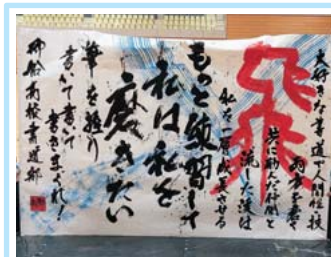 大好きな書道で人間性・技
両方を養う
共に励んだ仲間と
流した涙は
私を一層成長させる
飛
もっと練習して
私は私を
磨きたい
筆を握り
書いて書いて
書きまくれ!
高校書道部